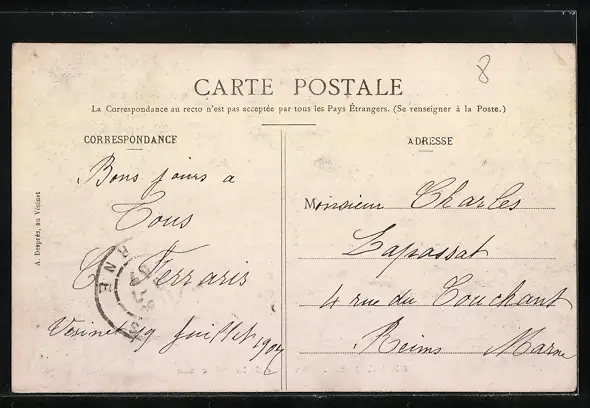 8
CARTE POSTALE
La Correspondance au recto n'est pas acceptée par tous les Pays Étrangers. (Se renseigner à la Poste.)
CORRESPONDANCE
Bons jours a
Tous
C Ferraris
Vésinet 19 Juillet 1904
A. Després, au Vésinet
ADRESSE
Monsieur Charles
Lapassat
4 rue du Couchant
Reims Marne